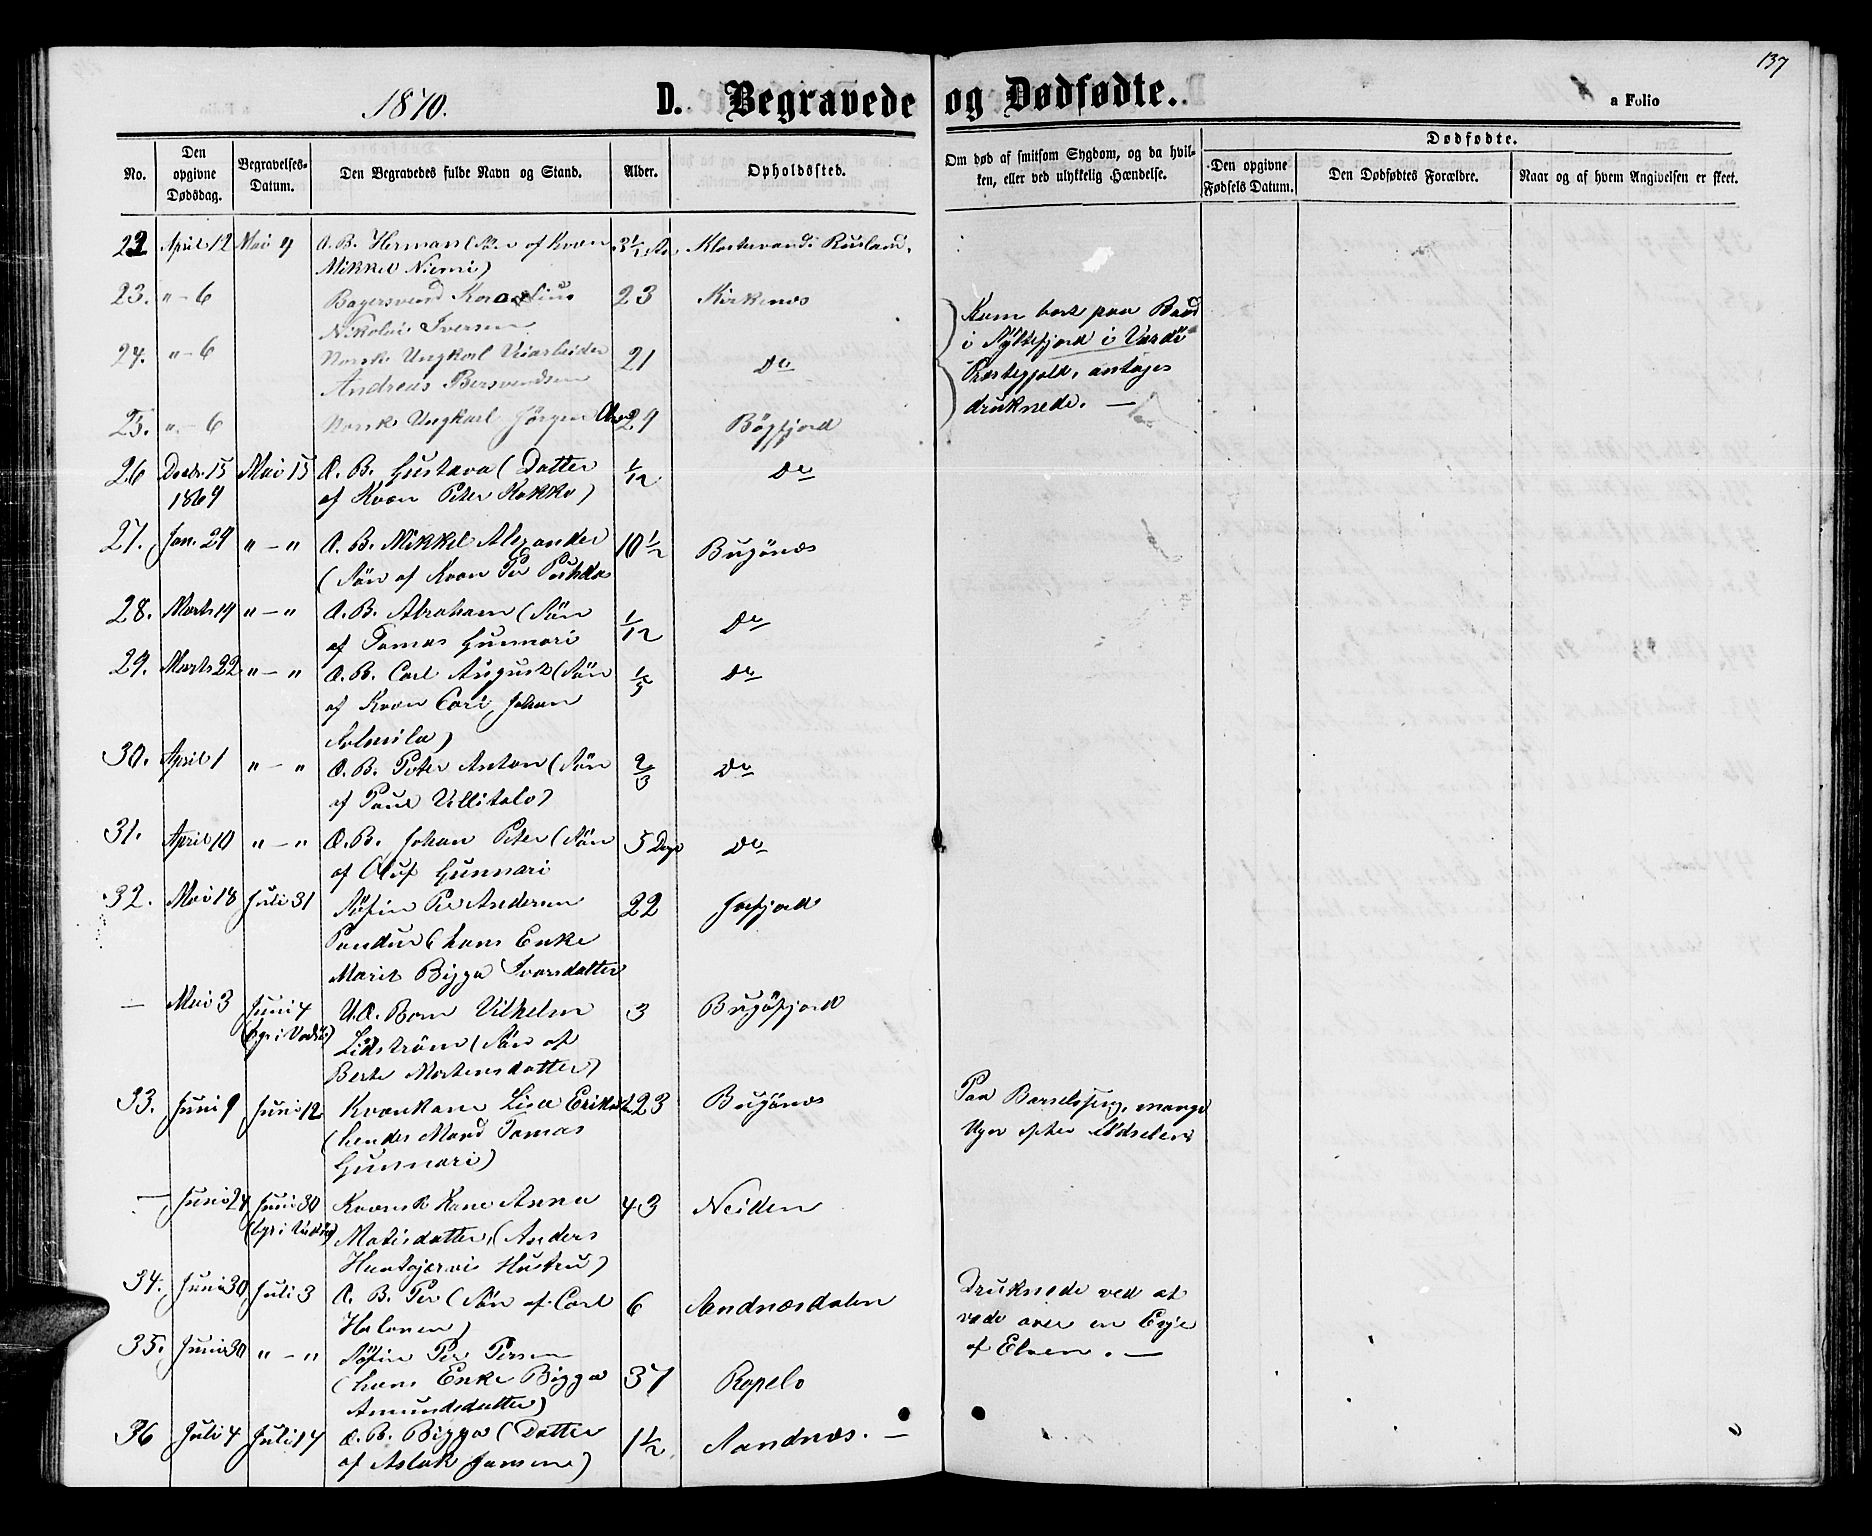 137
1870.
D. Begravede og Dødfødte.
a Folio
No.
Den opgivne Dødsdag.
Begravelses-Datum.
Den Begravedes fulde Navn og Stand.
Alder.
Opholdssted.
Om død af smitsom Sygdom, og da hvil-
ken, eller ved ulykkelig Hændelse.
Dødfødte.
Den opgivne Fødsels Datum.
Den Dødfødtes Forældre.
Naar og af hvem Angivelsen er skeet.
22 April 12 Mai 9 Æ. B. Herman (Søn af Kvæn 3½ Klostervand i Rusland.
Mikkel Niemi)
23. " - 6 Bagersvend 23 Kirkenæs
Nikolai Iversen
Kom bort paa Baad
24. " - 6 Norsk Ungkarl Veiarbeider 21 Do
i Syltefjord i Vardö
Andreas Bersvendsen
Præstegjeld, antages
25. " - 6 Norsk Ungkarl Jörgen 29 Bögfjord
druknede. —
26 Decbr. 15 Mai 15 Æ. B. Gustava (Datter 1/12 Do
1869 af Kvæn Peter Kokko)
27. Jan. 29 " - " Æ. B. Mikkel Alexander 10½ Bugönæs
(Sön af Kvæn Per
28. Marts 14 " - " Æ. B. Abraham (Sön 1/12 Do
af Tomas Gunnari
29. Marts 22 " - " Æ. B. Carl August (Sön 1/5 Do
af Kvæn Carl Johan
30. April 1 " - " Æ. B. Peter Anton (Sön 2/3 Do
af Paul Villitalo)
31. April 10 " - " Æ. B. Johan Peter (Sön 5 Dage Do
af Oluf Gunnari
32. Mai 18 Juli 31 Söfin Per Andersen 22 Jarfjord
(hans Enke
Marit Bigga Ivarsdatter
— Mai 3 Juni 4 U.Æ. Barn Vilhelm 3 Bugöfjord
(Sön af
Berte Mortensdatter)
33. Juni 9 Juni 12 Kvænkone Lisa 23 Bugönæs Paa Barselseng, mange
(hendes Mand Tomas Uger efter Födselen
Gunnari)
— Juni 24 Juni 30 Kvænsk Kone Anna 43 Neiden
Matisdatter, (Anders
Hustru)
34. Juni 30 Juli 3 Æ. B. Per (Sön af Carl 6 Sandnæsdalen Druknede ved at
Halonen) vade over en Evje
35. Juni 30 " - " Söfin Per Persen af Elven. —
(hans Enke Bigga 37 Ropelv
Amundsdatter)
36 Juli 4 Juli 14 Æ. B. Bigga (Datter 1½ Sandnæs. —
af Aslak Jansen)